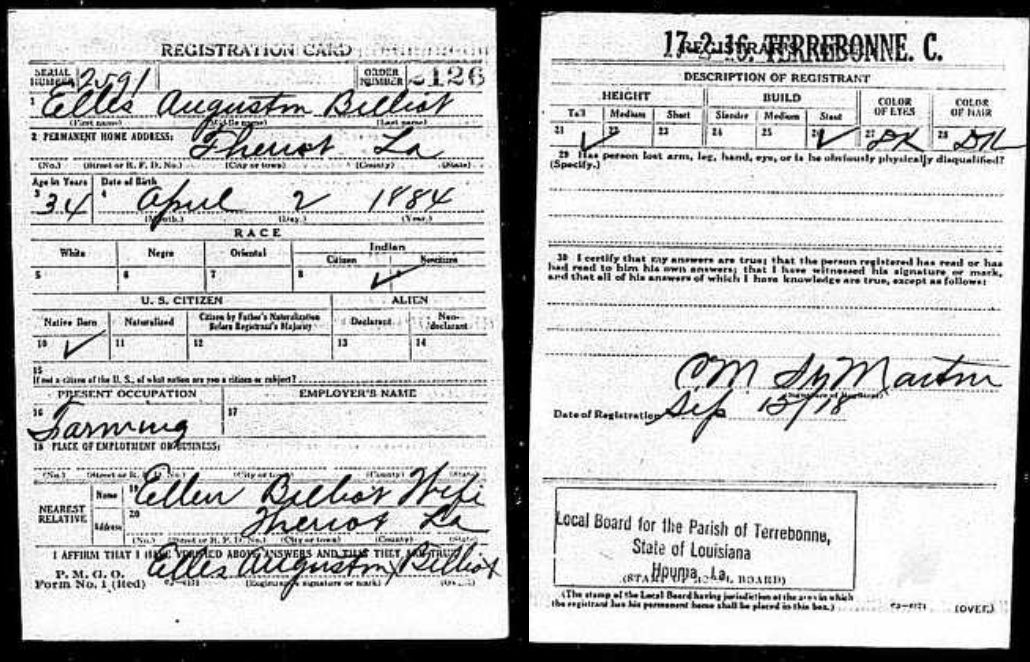 REGISTRATION CARD
SERIAL NUMBER 2591 ORDER NUMBER 2126
1 Elles Auguston Billiot
(First name) (Middle name) (Last name)
2 PERMANENT HOME ADDRESS:
Theriot La
(No.) (Street or R. F. D. No.) (City or town) (County) (State)
Age in Years Date of Birth
3 34 4 April 2 1884
(Month.) (Day.) (Year.)
RACE
White Negro Oriental Indian
Citizen Noncitizen
5 6 7 8 ✓ 9
U. S. CITIZEN ALIEN
Native Born Naturalized Citizen by Father's Naturalization Before Registrant's Majority Declarant Non-declarant
10 ✓ 11 12 13 14
15
If not a citizen of the U. S., of what nation are you a citizen or subject?
PRESENT OCCUPATION EMPLOYER'S NAME
16 Farming 17
18 PLACE OF EMPLOYMENT OR BUSINESS:
(No.) (Street or R. F. D. No.) (City or town) (County) (State)
NEAREST RELATIVE Name 19 Ellen Billiot Wife
Address 20 Theriot La
(No.) (Street or R. F. D. No.) (City or town) (County) (State)
I AFFIRM THAT I HAVE VERIFIED ABOVE ANSWERS AND THAT THEY ARE TRUE
P. M. G. O.
Form No. 1 (Red) Elles Auguston Billiot
(Registrant's signature or mark) (OVER)
17-2-16. TERREBONNE. C.
REGISTRAR'S
DESCRIPTION OF REGISTRANT
HEIGHT BUILD COLOR OF EYES COLOR OF HAIR
Tall Medium Short Slender Medium Stout
21 ✓ 22 23 24 25 26 ✓ 27 DK 28 DK
29 Has person lost arm, leg, hand, eye, or is he obviously physically disqualified?
(Specify.)
30 I certify that my answers are true; that the person registered has read or has
had read to him his own answers; that I have witnessed his signature or mark,
and that all of his answers of which I have knowledge are true, except as follows:
(Signature of Registrar)
Date of Registration Sep 12/18
Local Board for the Parish of Terrebonne,
State of Louisiana
Houma, La.
(STAMP OF LOCAL BOARD)
(The stamp of the Local Board having jurisdiction of the area in which
the registrant has his permanent home shall be placed in this box.)
(OVER)